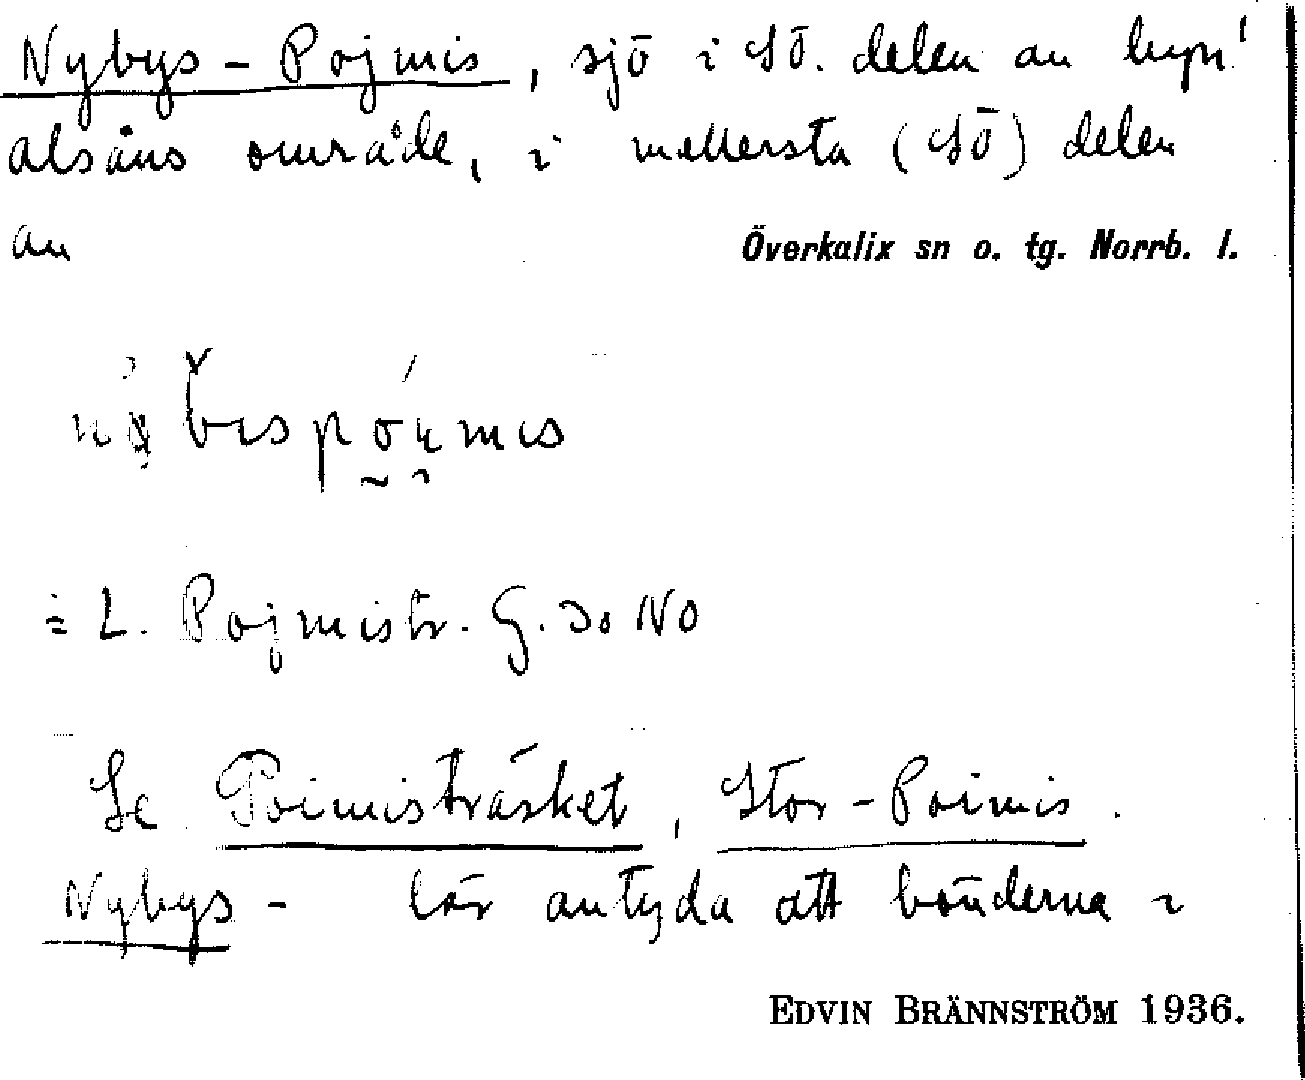 Nybys-Pojmis, sjö i SÖ. delen av
alsåns område, i mellersta (SÖ) delen
av Överkalix sn o. tg. Norrb. l.
= L. Pojmistr. G. So NO
Se Poimisträsket, Stor-Poimis.
Nybys- lär antyda att bönderna i
EDVIN BRÄNNSTRÖM 1936.